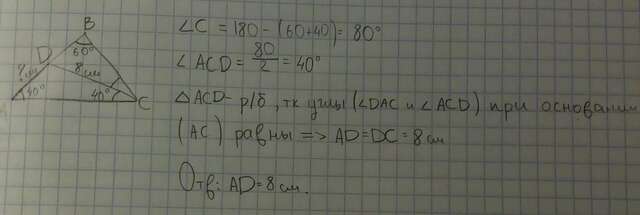 B
60°
D
? см
8 см
40°
40°
C
∠C = 180 - (60+40) = 80°
∠ACD = 80/2 = 40°
△ACD - р/б, тк углы (∠DAC и ∠ACD) при основании
(AC) равны => AD=DC=8 см
Отв: AD=8 см.